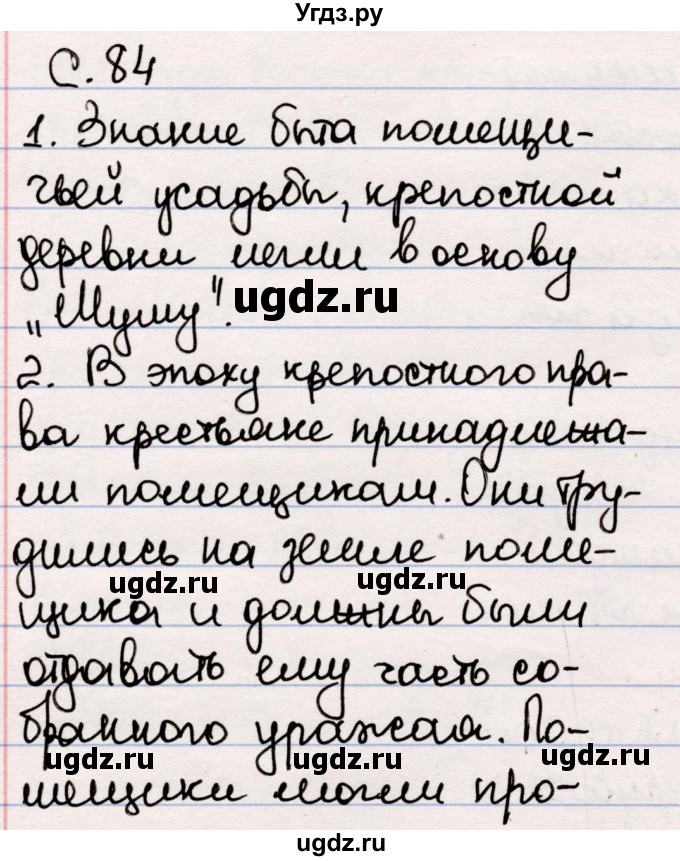 Угдз.ру
С. 84
1. Знание быта помещи-
чьей усадьбы, крепостной
деревни легли в основу
„Муму".
ugdz.ru
2. В эпоху крепостного пра-
ва крестьяне принадлежа-
ли помещикам. Они тру-
дились на земле поме-
ugdz.ru ugdz.ru
щика и должны были
отдавать ему часть со-
бранного урожая. По-
ugdz.ru ugdz.ru ugdz.ru
мещики могли про-
ugdz.ru